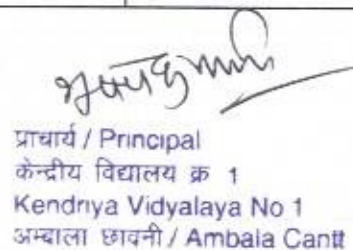 प्राचार्य / Principal
केन्द्रीय विद्यालय क्र 1
Kendriya Vidyalaya No 1
अम्बाला छावनी / Ambala Cantt